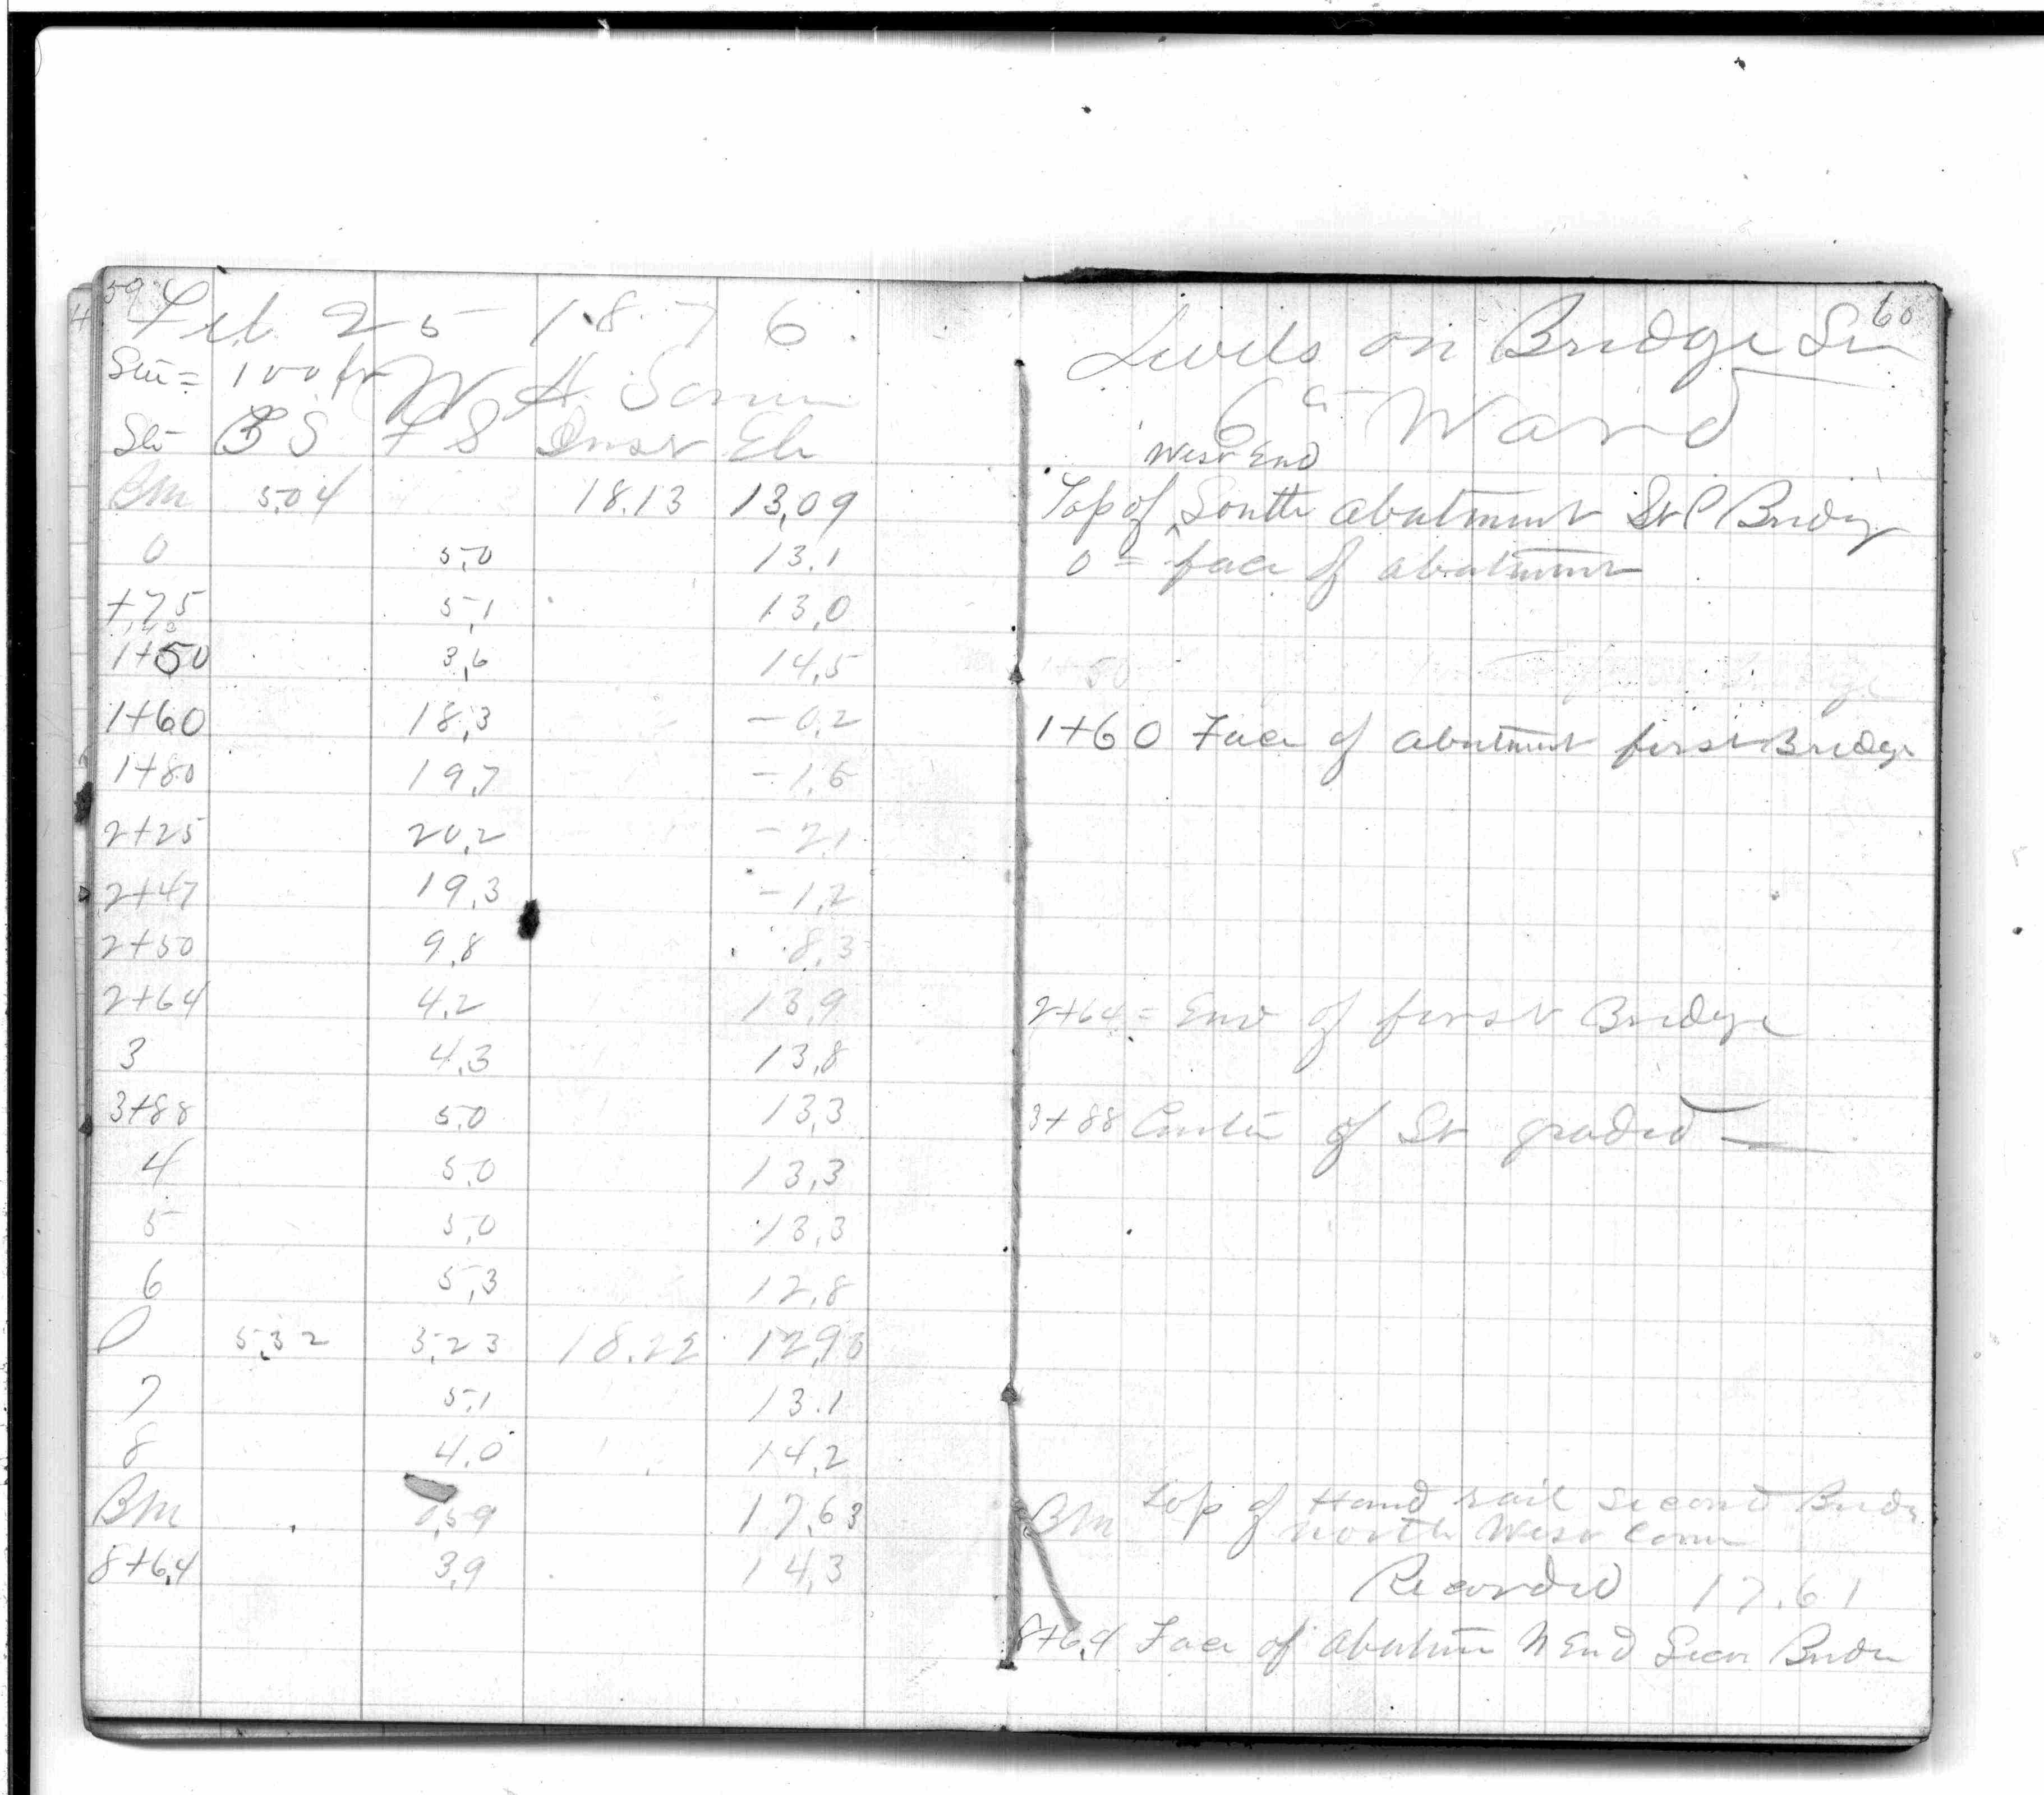 59
Feb. 25 1876.
Sta = 100 ft W H
Sta BS FS Inst Ele
BM 5,04 18.13 13,09
0 5,0 13.1
+75 5,1 13,0
1+50 3,6 14,5
1+60 18,3 -0,2
1+80 19,7 -1,6
2+25 20,2 -2,1
2+47 19,3 -1,2
2+50 9,8 8,3
2+64 4,2 13,9
3 4,3 13,8
3+88 5,0 13,3
4 5,0 13,3
5 5,0 13,3
6 5,3 12,8
0 5,32 5,23 18.22 12,93
7 5,1 13.1
8 4,0 14,2
BM 0,59 17,63
8+6,4 3,9 14,3
60
Levels on Bridge St
6th Ward
West End
Top of South abutment St P Bridge
0 = face of abutment
1+50
1+60 Face of abutment first Bridge
2+64 = End of first Bridge
3+88 Center of St graded
BM Top of Hand rail second Bridge
North West Corner
Recorded 17.61
8+6,4 Face of abutment N End Secon Bridge